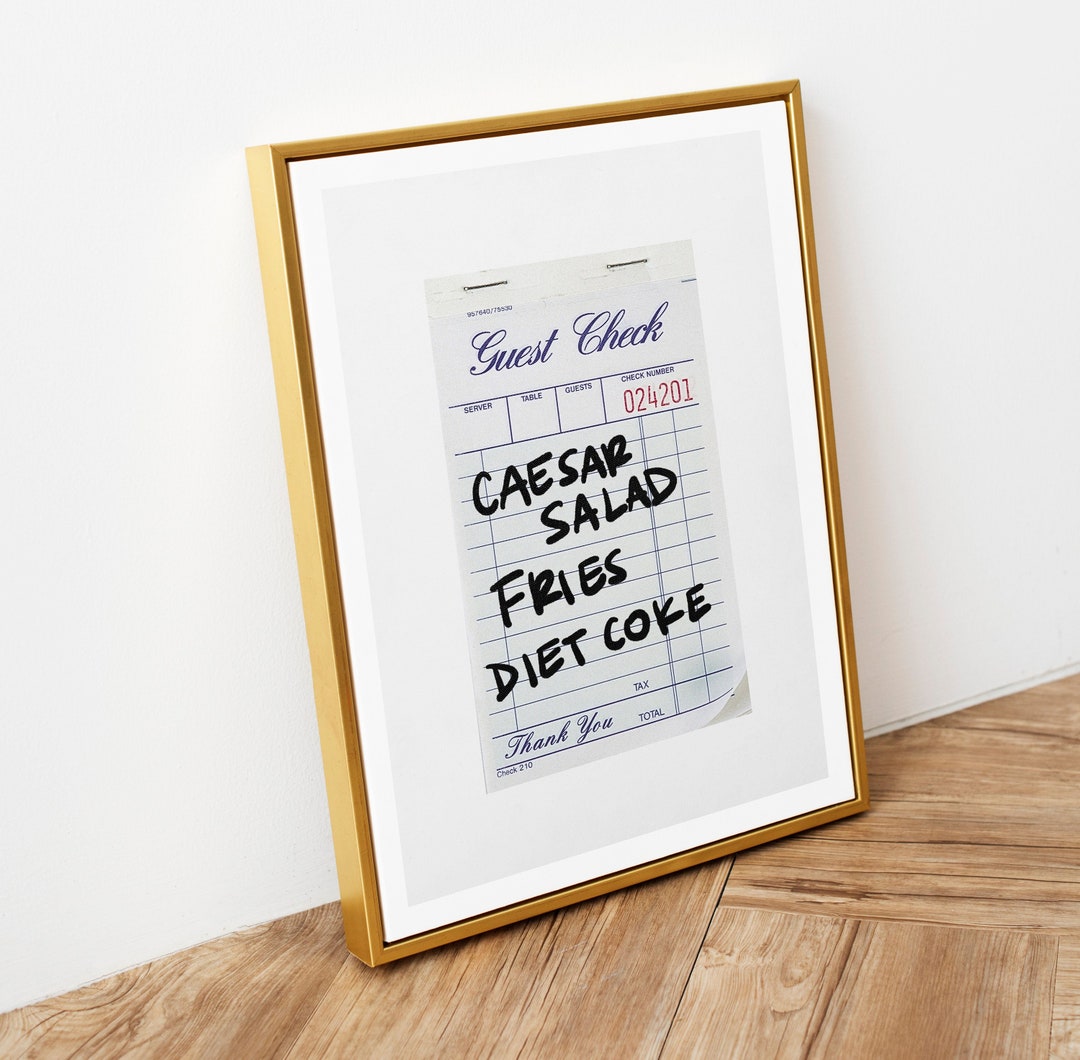 957640/75530
Guest Check
SERVER TABLE GUESTS CHECK NUMBER
024201
CAESAR
SALAD
FRIES
DIET COKE
TAX
Thank You TOTAL
Check 210